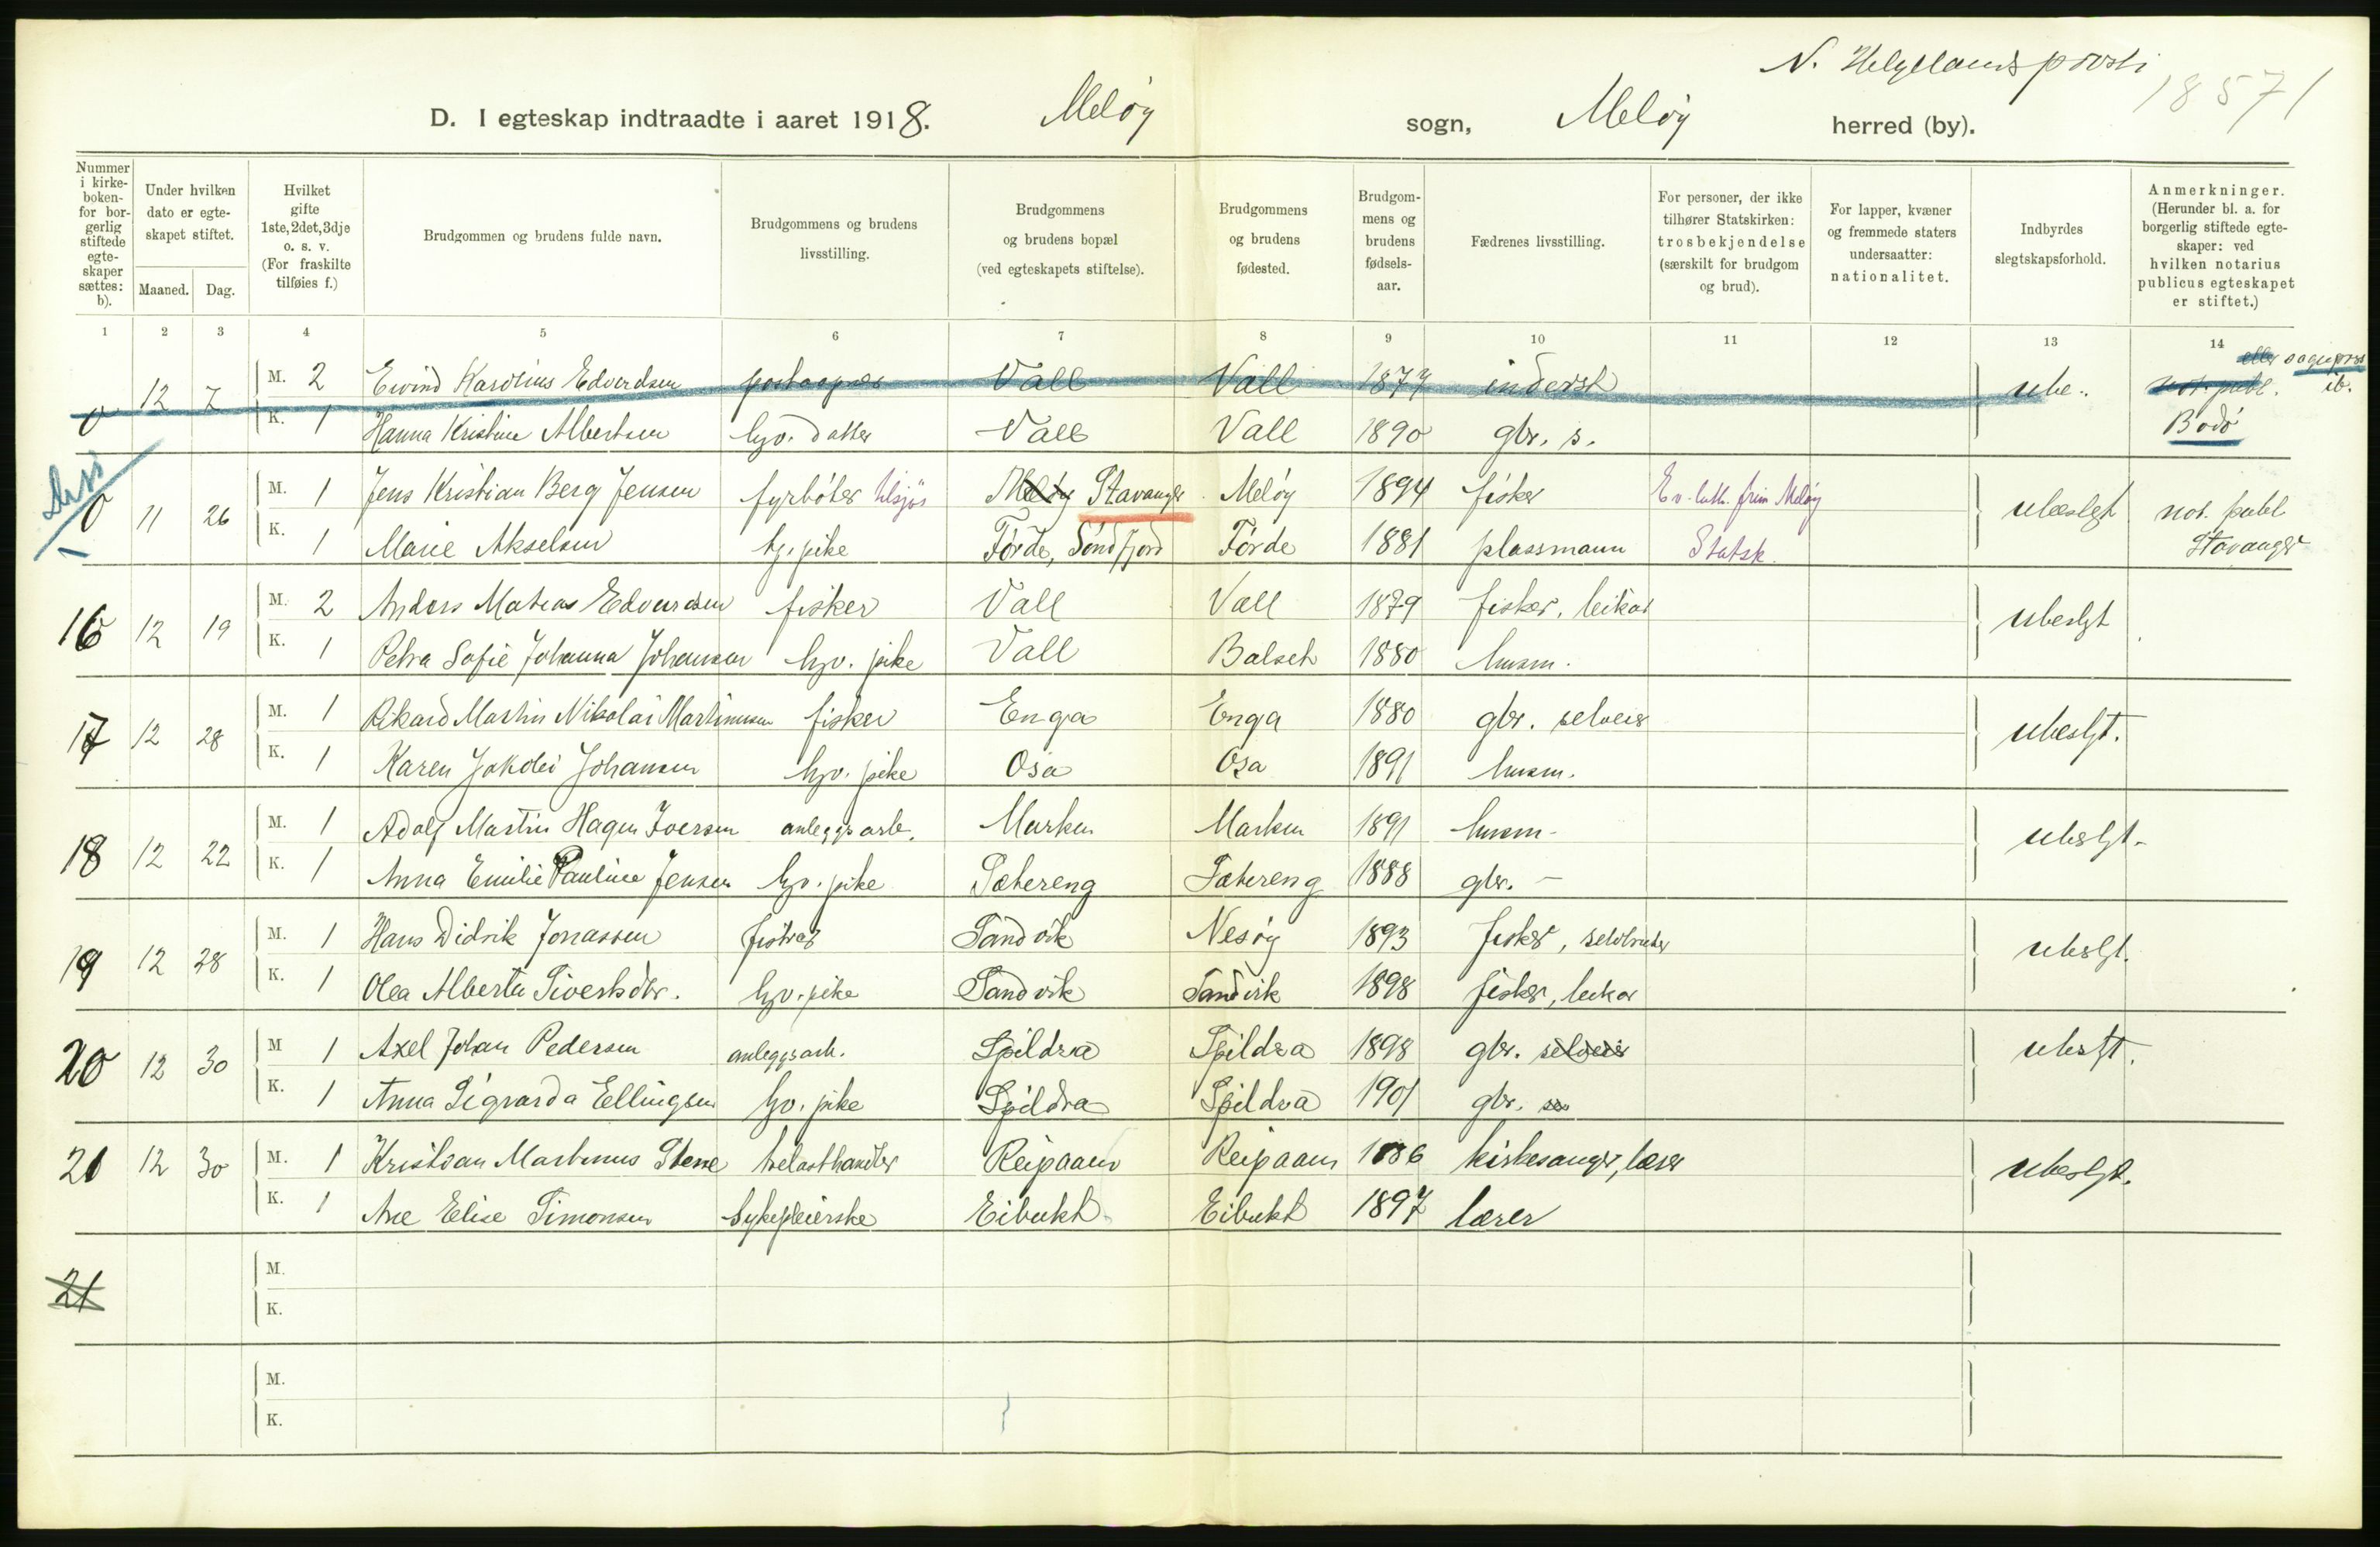 N. Helgelands provsti
18571
D. I egteskap indtraadte i aaret 1918. Meløy sogn, Meløy herred (by).
Nummer i kirkeboken- for borgerlig stiftede egteskaper sættes: b).
Under hvilken dato er egteskapet stiftet.
Maaned. Dag.
Hvilket gifte 1ste, 2det, 3dje o. s. v. (For fraskilte tilføies f.)
Brudgommen og brudens fulde navn.
Brudgommens og brudens livsstilling.
Brudgommens og brudens bopæl (ved egteskapets stiftelse).
Brudgommens og brudens fødested.
Brudgommens og brudens fødselsaar.
Fædrenes livsstilling.
For personer, der ikke tilhører Statskirken: trosbekjendelse (særskilt for brudgom og brud).
For lapper, kvæner og fremmede staters undersaatter: nationalitet.
Indbyrdes slegtskapsforhold.
Anmerkninger. (Herunder bl. a. for borgerlig stiftede egteskaper: ved hvilken notarius publicus egteskapet er stiftet.)
1 2 3 4 5 6 7 8 9 10 11 12 13 14
0 12 7 M. 2 Eivind Karolius Edvardsen postaapner Vall Vall 1877 inderst ube. not. publ.
K. 1 Hanna Kristine Albertsen hjv. datter Vall Vall 1890 gbr. s. Bodø
0 11 26 M. 1 Jens Kristian Berg Jensen fyrbøter tilsjøs Meløy Stavanger Meløy 1894 fisker Ev. luth. frim Meløy ubeslegt not. publ
K. 1 Marie Akselsen tj. pike Førde, Søndfjord Førde 1881 plassmann Statsk. Stavanger
16 12 19 M. 2 Anders Mateas Edvardsen fisker Vall Vall 1879 fisker, leikar ubeslgt
K. 1 Petra Sofie Johanna Johansen hjv. pike Vall Balset 1880 husm.
17 12 28 M. 1 Rikard Martin Nikolai Martinusen fisker Enga Enga 1880 gbr. selveier ubeslgt.
K. 1 Karen Jakobi Johansen hjv. pike Osa Osa 1891 husm.
18 12 22 M. 1 Adolf Martin Hagen Iversen anleggsarb. Marken Marken 1891 husm. ubeslgt.
K. 1 Anna Emilie Pauline Jensen hjv. pike Sætereng Sætereng 1888 gbr. —
19 12 28 M. 1 Hans Didrik Jonassen fisker Sandvik Nesøy 1893 fisker, selvbruker ubeslgt.
K. 1 Olea Alberta Sivertsdtr. hjv. pike Sandvik Sandvik 1898 fisker, leikar
20 12 30 M 1 Axel Johan Pedersen anleggsarb. Spildra Spildra 1898 gbr. selveier ubeslgt.
K. 1 Anna Sigvarda Ellingsen hjv. pike Spildra Spildra 1901 gbr.
21 12 30 M. 1 Kristian Martinus Stene trelasthandler Reipaaen Reipaaen 1886 kirkesanger, lærer ubeslgt.
K. 1 Ane Elise Simonsen Sykepleierske Eibukt Eibukt 1897 lærer
21 M.
K.
M.
K.